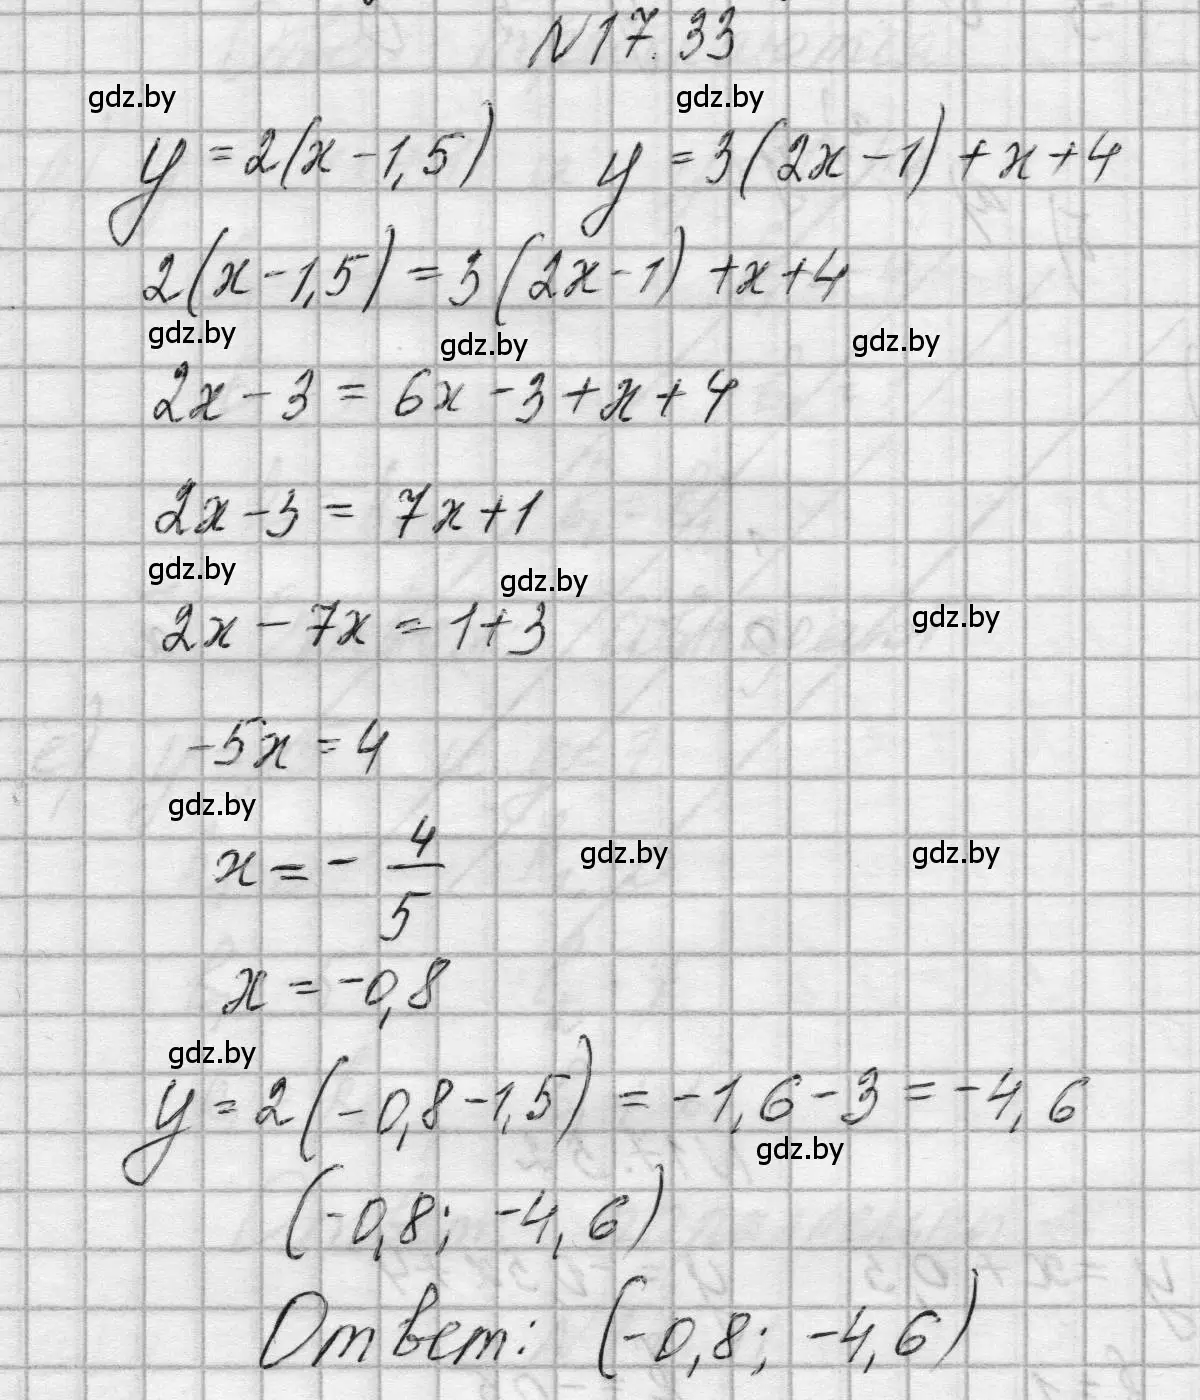 N17.33
gdz.by gdz.by
y = 2(x - 1,5) y = 3(2x - 1) + x + 4
2(x - 1,5) = 3(2x - 1) + x + 4
gdz.by gdz.by gdz.by
2x - 3 = 6x - 3 + x + 4
2x - 3 = 7x + 1
gdz.by gdz.by
2x - 7x = 1 + 3 gdz.by
-5x = 4
gdz.by
x = - 4/5 gdz.by gdz.by
x = -0,8
gdz.by
y = 2(-0,8 - 1,5) = -1,6 - 3 = -4,6
gdz.by
(-0,8; -4,6)
Ответ: (-0,8; -4,6)